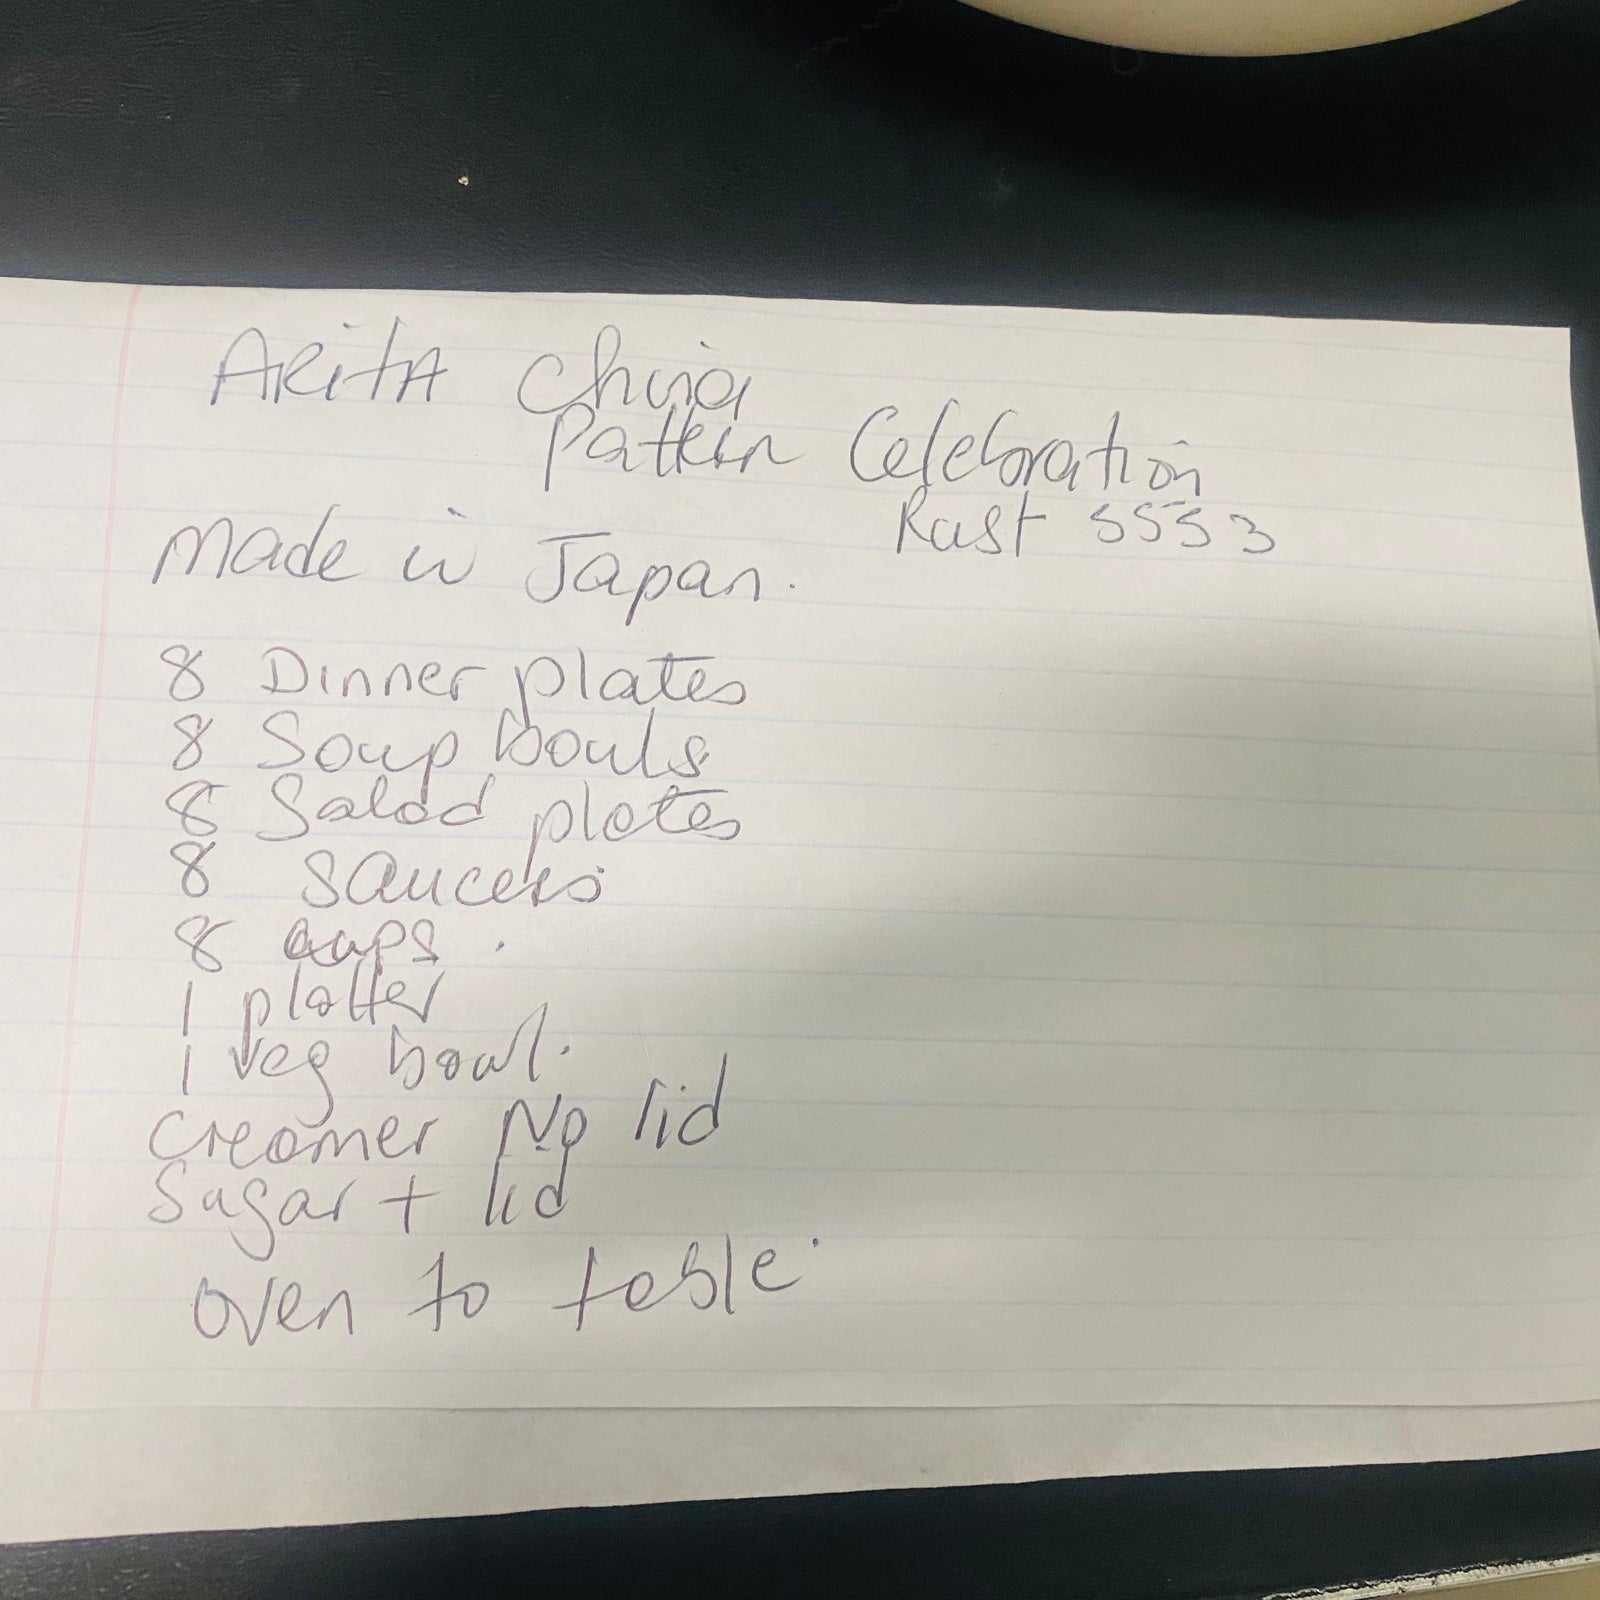 ARitA China
Pattern Celebration
Rust 5553
made in Japan.
8 Dinner plates
8 Soup bowls
8 Salad plates
8 saucers
8 cups.
1 platter
1 veg bowl.
Creamer No lid
Sugar + lid
oven to table.